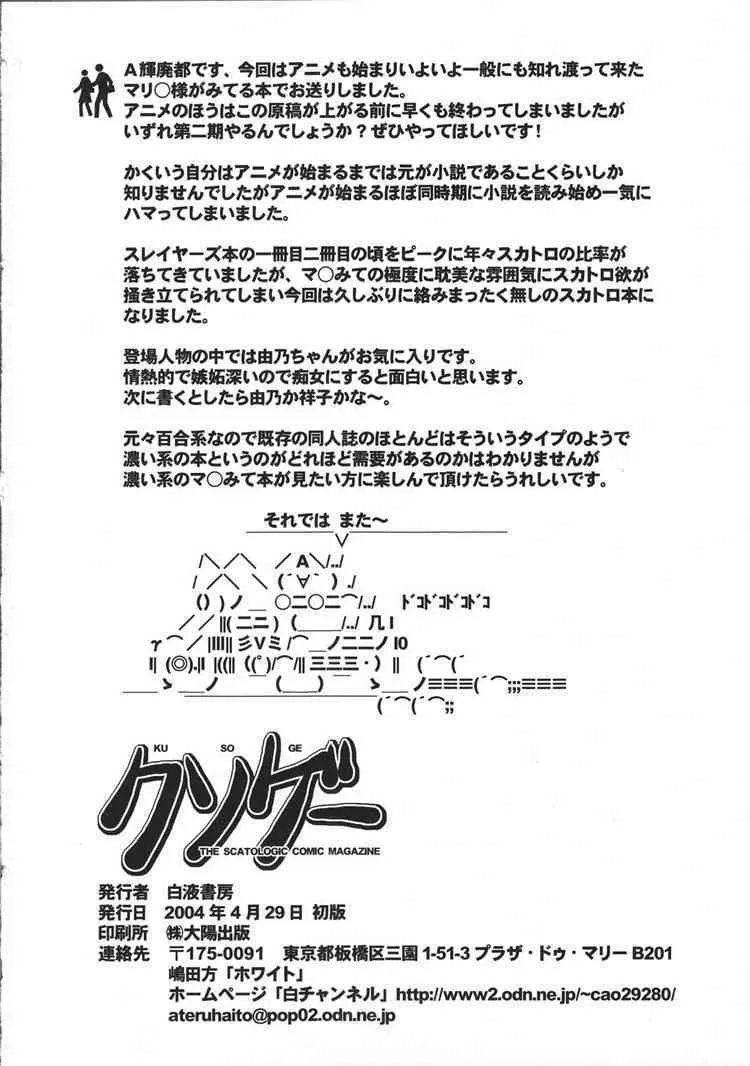 A輝廃都です、今回はアニメも始まりいよいよ一般にも知れ渡って来た
マリ○様がみてる本でお送りしました。
アニメのほうはこの原稿が上がる前に早くも終わってしまいましたが
いずれ第二期やるんでしょうか?ぜひやってほしいです!
かくいう自分はアニメが始まるまでは元が小説であることくらいしか
知りませんでしたがアニメが始まるほぼ同時期に小説を読み始め一気に
ハマってしまいました。
スレイヤーズ本の一冊目二冊目の頃をピークに年々スカトロの比率が
落ちてきていましたが、マ○みての極度に耽美な雰囲気にスカトロ欲が
掻き立てられてしまい今回は久しぶりに絡みまったく無しのスカトロ本に
なりました。
登場人物の中では由乃ちゃんがお気に入りです。
情熱的で嫉妬深いので痴女にすると面白いと思います。
次に書くとしたら由乃か祥子かな~。
元々百合系なので既存の同人誌のほとんどはそういうタイプのようで
濃い系の本というのがどれほど需要があるのかはわかりませんが
濃い系のマ○みて本が見たい方に楽しんで頂けたらうれしいです。
それでは また~
ドコドコドコドコ
KU SO GE
クソゲー
THE SCATOLOGIC COMIC MAGAZINE
発行者 白液書房
発行日 2004年4月29日 初版
印刷所 ㈱大陽出版
連絡先 〒175-0091 東京都板橋区三園1-51-3プラザ・ドゥ・マリーB201
嶋田方「ホワイト」
ホームページ「白チャンネル」http://www2.odn.ne.jp/~cao29280/
ateruhaito@pop02.odn.ne.jp